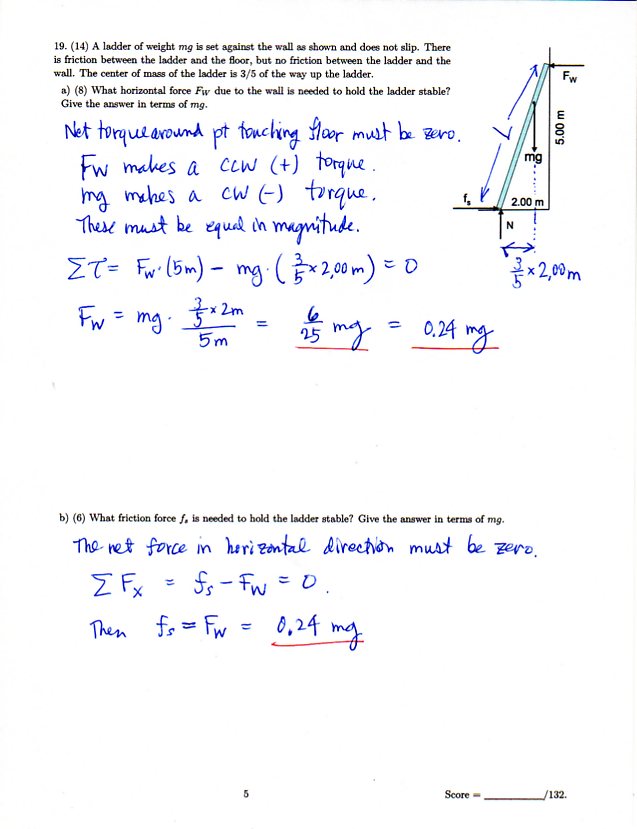 19. (14) A ladder of weight mg is set against the wall as shown and does not slip. There
is friction between the ladder and the floor, but no friction between the ladder and the
wall. The center of mass of the ladder is 3/5 of the way up the ladder.
a) (8) What horizontal force FW due to the wall is needed to hold the ladder stable?
Give the answer in terms of mg.
FW
5.00 m
L
mg
fs
2.00 m
N
3/5 × 2,00 m
Net torque around pt touching floor must be zero.
FW makes a CCW (+) torque.
mg makes a CW (-) torque.
These must be equal in magnitude.
Στ = FW·(5m) − mg·(3/5 × 2,00 m) = 0
FW = mg · (3/5 × 2m)/5m = 6/25 mg = 0.24 mg
b) (6) What friction force fs is needed to hold the ladder stable? Give the answer in terms of mg.
The net force in horizontal direction must be zero.
ΣFx = fs − FW = 0.
Then fs = FW = 0.24 mg
5
Score = ________/132.